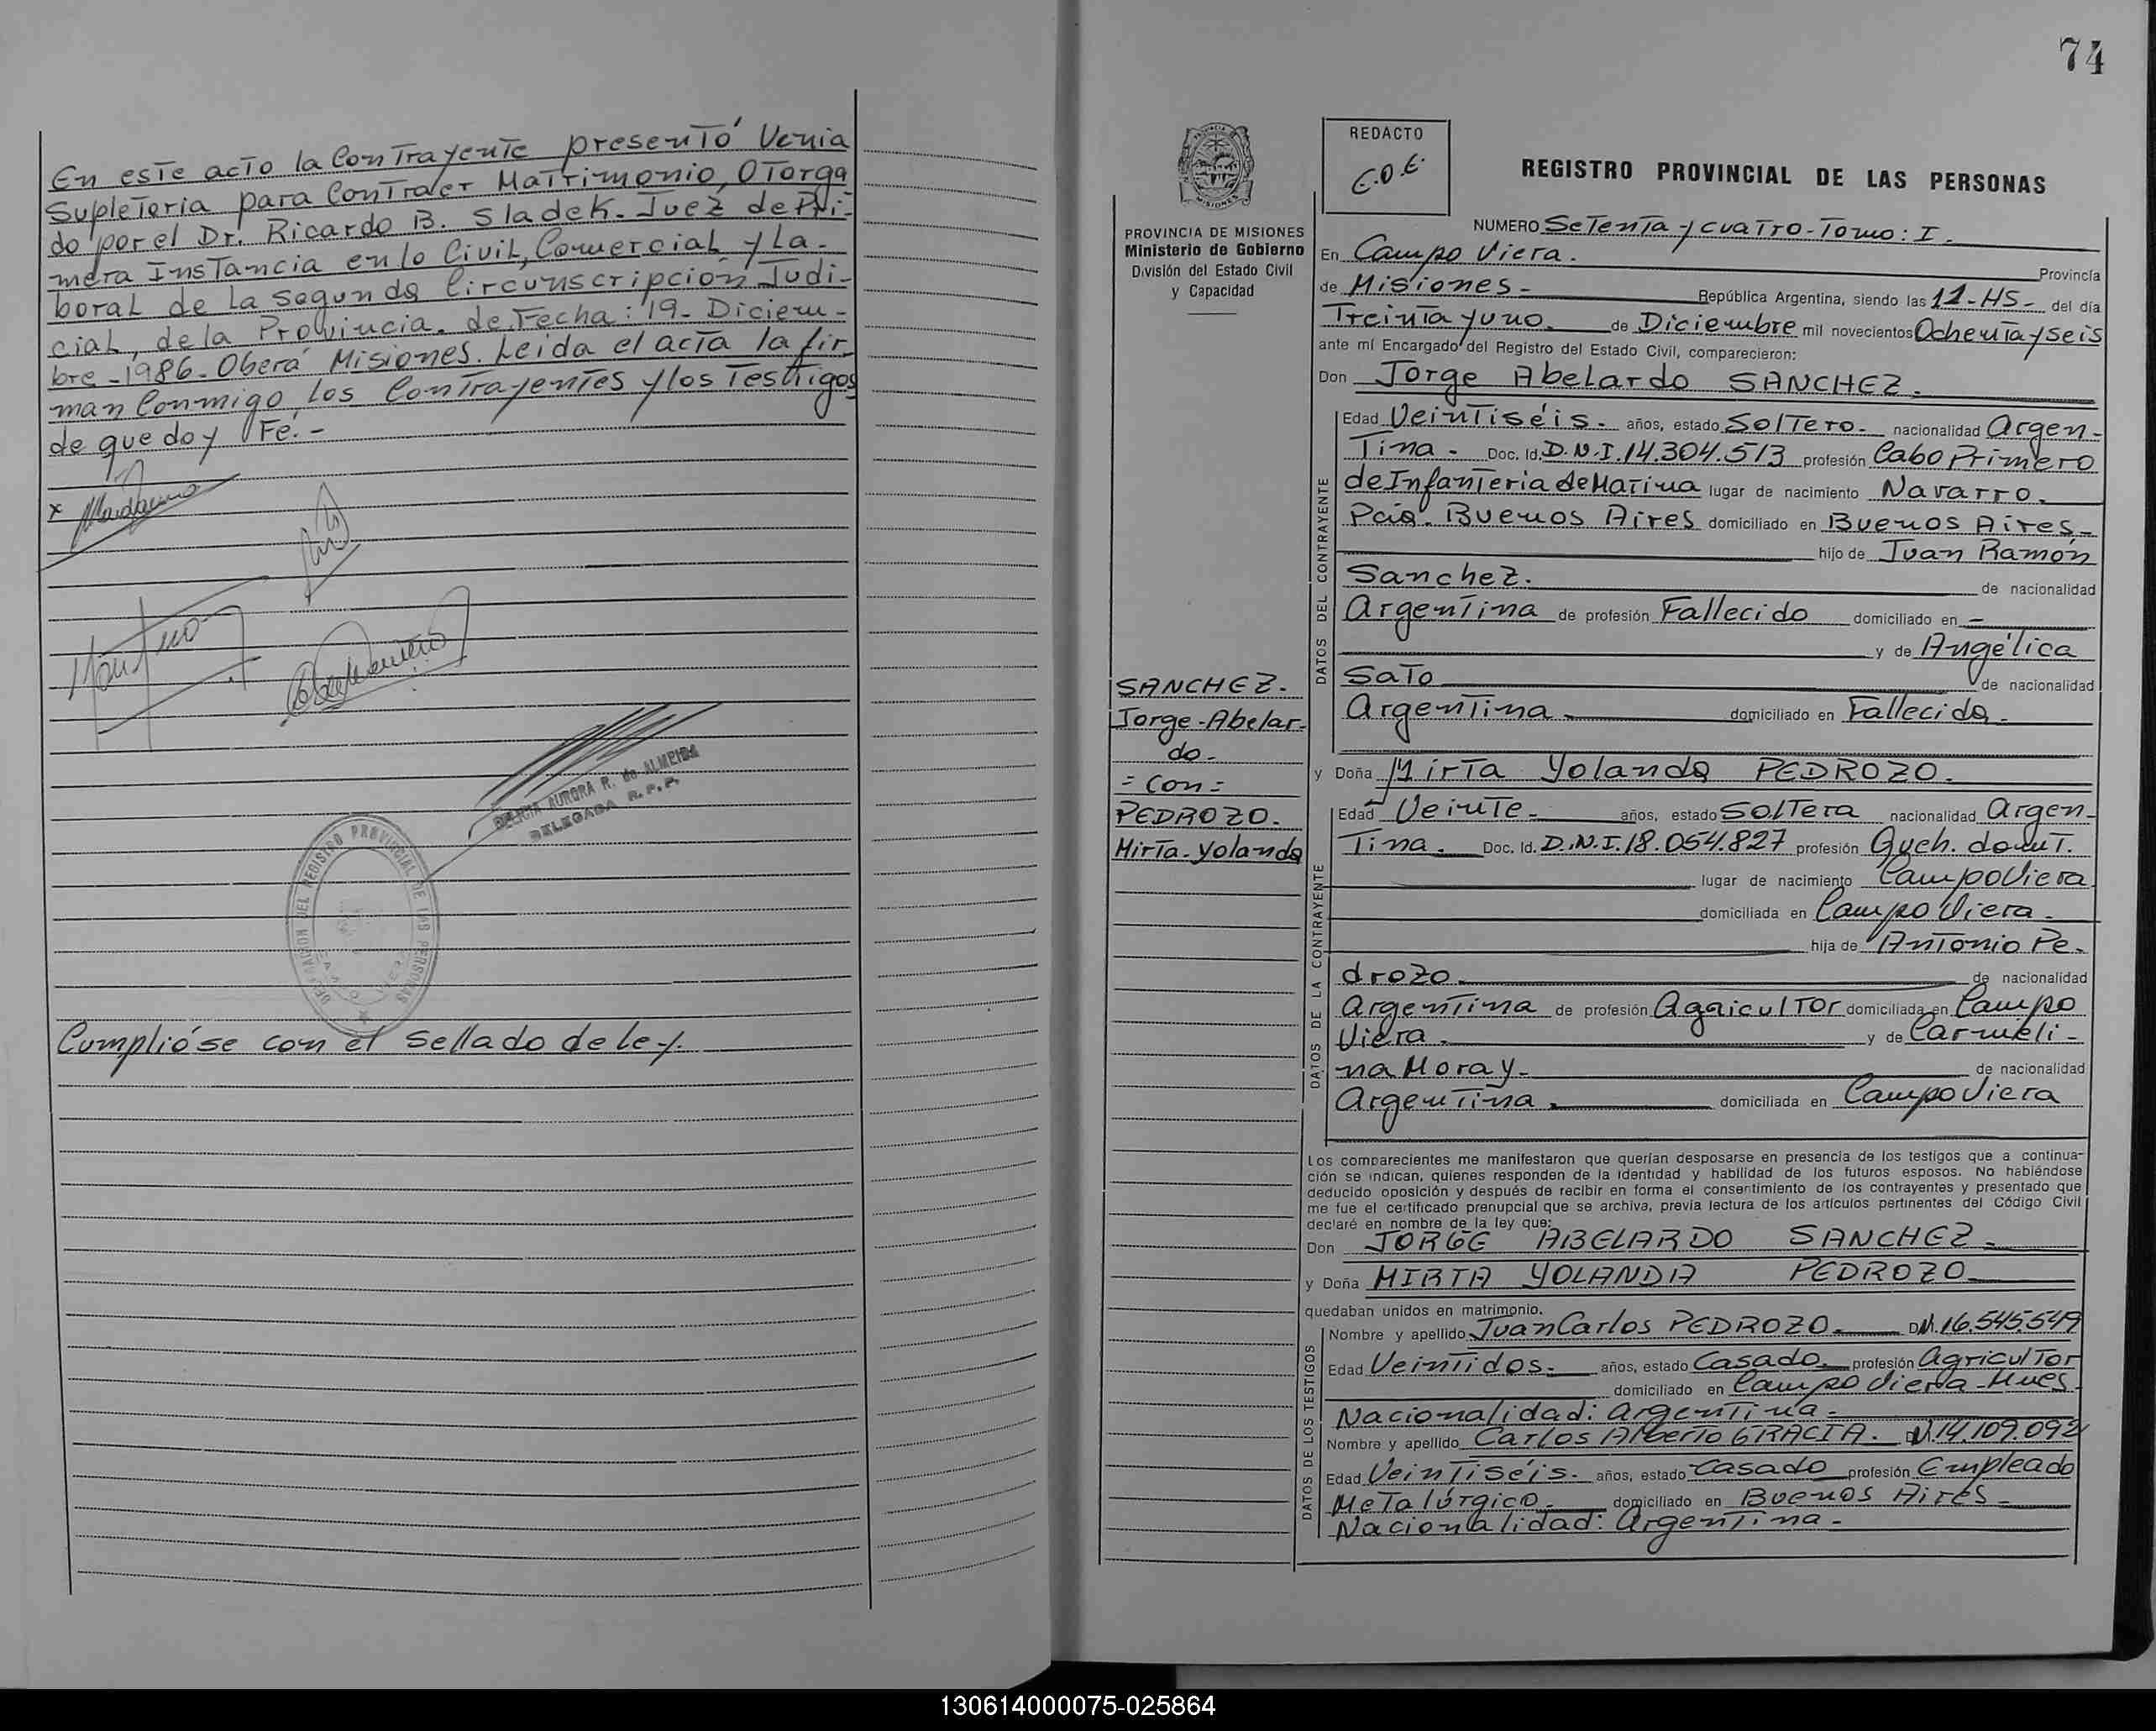 En este acto la Contrayente presentó Venia
Supletoria para Contraer Matrimonio, Otorga
do por el Dr. Ricardo B. Sladek. Juez de Pri-
mera Instancia en lo Civil, Comercial y La-
boral de la Segunda Circunscripción Judi-
cial, de la Provincia. de Fecha: 19- Diciem-
bre-1986- Oberá Misiones. Leida el acta la fir-
man Conmigo los Contrayentes y los Testigos
de que doy Fé.-
x
AURORA R. de ALMEIDA
DELEGADA R. P. P.
DEL REGISTRO PROVINCIAL DE LAS PERSONAS
Cumplióse con el sellado de ley.
74
REDACTO
REGISTRO PROVINCIAL DE LAS PERSONAS
PROVINCIA DE MISIONES
Ministerio de Gobierno
División del Estado Civil
y Capacidad
SANCHEZ.
Jorge-Abelar-
do-
=Con=
PEDROZO.
Mirta-Yolanda
NUMERO Setenta y cuatro-Tomo: I-
En Campo Viera. Provincia
de Misiones- República Argentina, siendo las 11-HS- del día
Treinta y uno. de Diciembre mil novecientos Ochenta y seis
ante mí Encargado del Registro del Estado Civil, comparecieron:
Don Jorge Abelardo SANCHEZ.
DATOS DEL CONTRAYENTE
Edad Veintiséis. años, estado Soltero- nacionalidad Argen-
Tina- Doc. Id. D.N.I.14.304.513 profesión Cabo Primero
de Infantería de Marina lugar de nacimiento Navarro.
Pcia. Buenos Aires domiciliado en Buenos Aires-
hijo de Juan Ramón
Sanchez. de nacionalidad
Argentina de profesión Fallecido domiciliado en -
y de Angélica
Sato de nacionalidad
Argentina- domiciliado en Fallecida-
y Doña Mirta Yolanda PEDROZO.
DATOS DE LA CONTRAYENTE
Edad Veinte- años, estado Soltera nacionalidad Argen-
Tina. Doc. Id. D.N.I.18.054.827 profesión Queh. domt.
lugar de nacimiento Campo Viera
domiciliada en Campo Viera-
hija de Antonio Pe-
drozo. de nacionalidad
Argentina de profesión Agricultor domiciliada en Campo
Viera- y de Carmeli-
na Moray- de nacionalidad
Argentina. domiciliada en Campo Viera
Los comparecientes me manifestaron que querían desposarse en presencia de los testigos que a continua-
ción se indican, quienes responden de la identidad y habilidad de los futuros esposos. No habiéndose
deducido oposición y después de recibir en forma el consentimiento de los contrayentes y presentado que
me fue el certificado prenupcial que se archiva, previa lectura de los artículos pertinentes del Código Civil
declaré en nombre de la ley que:
Don JORGE ABELARDO SANCHEZ-
y Doña MIRTA YOLANDA PEDROZO
quedaban unidos en matrimonio.
DATOS DE LOS TESTIGOS
Nombre y apellido Juan Carlos PEDROZO-
Edad Veintidos- años, estado Casado- profesión Agricultor
domiciliado en Campo Viera-Mnes
Nacionalidad: Argentina-
Nombre y apellido Carlos Alberto GRACIA. 14.109.092
Edad Veintiséis. años, estado Casado profesión Empleado
Metalúrgico- domiciliado en Buenos Aires-
Nacionalidad: Argentina-
130614000075-025864